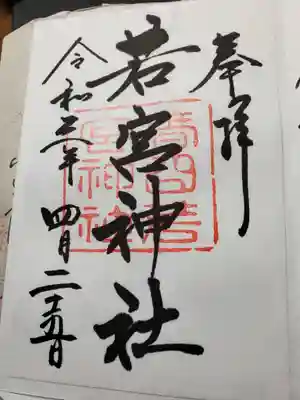 奉拝
若宮神社
令和三年 四月二十五日